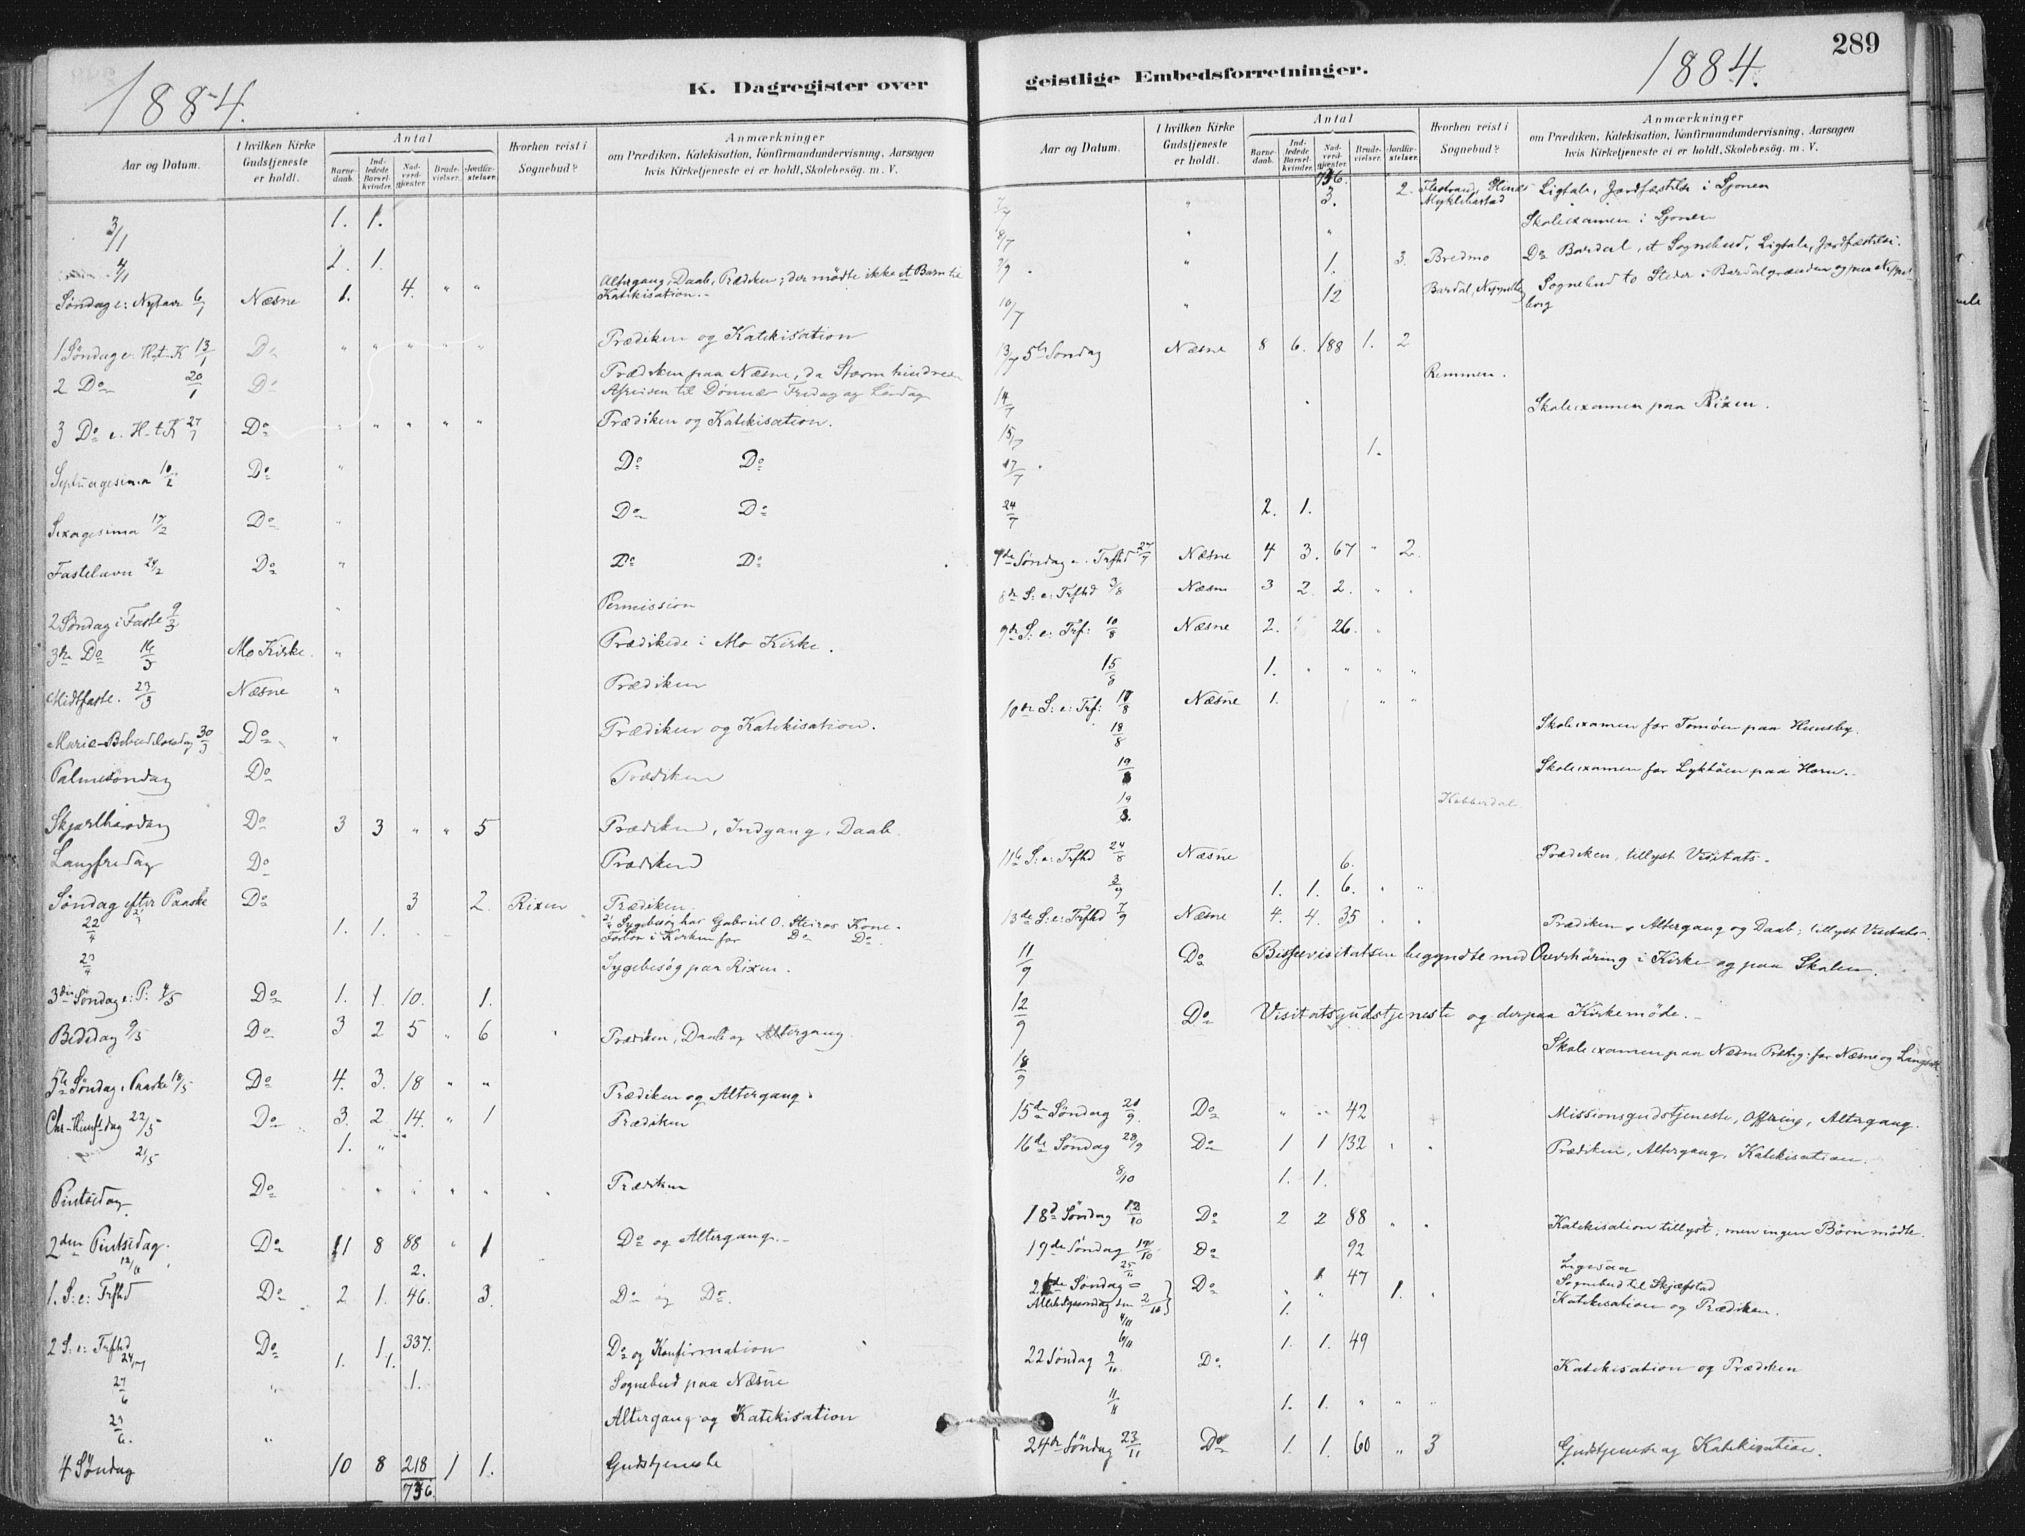 289
1884.
K. Dagregister over
geistlige Embedsforretninger.
1884.
Aar og Datum.
I hvilken Kirke Gudstjeneste er holdt.
Antal
Barnedaab.
Indledede Barselkvinder.
Nadverdgjester
Brudevielser.
Jordfæstelser.
Hvorhen reist i Sognebud?
Anmærkninger
om Prædiken, Katekisation, Konfirmandundervisning, Aarsagen
hvis Kirketjeneste ei er holdt, Skolebesög. m. V.
3/1 1. 1.
4/1 2. 1.
Søndag e: Nytaar 6/1 Næsne 1. 4. " " Altergang, Daab, Prædiken; der mødte ikke et Barn til
Katekisation.-
1 Søndag e: H-t-K 13/1 Do " " " " " Prædiken og Katekisation
2 Do 20/1 Do Prædiken paa Næsne, da Storm hindrede
Afreisen til Dønnæs Fredag og Lørdag
3 Do e. H-t K 27/1 Do " " " " " Prædiken og Katekisation.
Septuagesima 10/2 Do " Do Do
Sexagesima 17/2 Do " Do Do
Fastelavn 24/2 Do " Do Do
2 Søndag i Faste 9/3 " Permission
3de Do 16/3 Mo Kirke. " Prædikede i Mo Kirke.
Midtfaste. 23/3 Næsne " Prædiken
Mariæ-Bebudelsesdag 30/3 Do " Prædiken og Katekisation.
Palmesøndag Do Prædiken
Skjærthorsdag Do 3 3 " " 5 Prædiken, Indgang, Daab.
Langfredag Do Prædiken
Søndag efter Paaske Do 3 2. Rixen Prædiken.
22/4 1. 1. Sygebesøg hos Gabriel O. Steiros Kone.
Forbøn i Kirken for Do Do.
23/4 Sygebesøg paa Rixen.
3die Søndag e: P: 4/5 Do 1. 1. 10. 1.
Bededag 9/5 Do 3 2 5 " 6 Prædiken, Daab og Altergang.
5te Søndag e Paaske 18/5 Do 4. 3. 18 " " Prædiken og Altergang.
Chr-Himfdag 22/5 Do 3. 2 14. " 1 Prædiken
21/5 1. "
Pintsedag. Do " " " " " Prædiken
2den Pintsedag. Do 11 8 88 " 1 Do og Altergang.-
12/6 2.
1. S: e: Trfhd Do 2 1. 46. 3. Do og Do.
2 S: e: Trfhd Do 1 337. Do og Konfirmation
1. 1.
27/6 " 1. Sognebud paa Næsne
29/6. " Altergang og Katekisation
4 Søndag 10 8 218 1 1. Gudstjeneste
736.
Aar og Datum.
I hvilken Kirke Gudstjeneste er holdt.
Antal
Barnedaab.
Indledede Barselkvinder.
Nadverdgjester
Brudevielser.
Jordfæstelser.
Hvorhen reist i Sognebud?
Anmærkninger
om Prædiken, Katekisation, Konfirmandundervisning, Aarsagen
hvis Kirketjeneste ei er holdt, Skolebesög. m. V.
736.
7/7 " 3. 2. Myklebostad Ligtale, Jordfæstelse i Sjonen
8/7 " " Skoleexamen i Sjonen
9/7. " 1. 3. Bredmo Do Bardal, et Sognebud, Ligtale, Jordfæstelse.
10/7 " 12 Bardal, Sognebud to Steder i Bardalgrænden og paa
13/7 5te Søndag Næsne 8 6. 188 1. 2
Remmen.
14/7 Skoleexamen paa Rixen.
15/7
17/7 1.
24/7 2. 1.
7de Søndag e. Trfhd 27/7 Næsne 4 3. 67 " 2.
8de S: e: Trfhd 3/8 Næsne 3 2 2. " "
9de S: e: Trf: 10/8 Næsne 2. 26. "
15/8 1. " " " "
10de S: e: Trf: 17/8 Næsne 1. " "
18/8 Skoleexamen for Tomøen paa Huusby.
19/8 Skoleexamen for Lyktöen paa Horn.-
19/8. Kobberdal
11te S: e: Trfhd 24/8 Næsne 6. Prædiken, tillyst Visitats-
3/9 1. 1. 6. " "
13de S: e: Trfhd 7/9 Næsne 4. 4. 35 " " Prædiken, Altergang og Daab; tillyst Visitats-
11/9 Do Bispevisitatsen begyndte med Overhøring i Kirke og paa Skolen.
12/9 Do Visitatsgudstjeneste og derpaa Kirkemøde.-
18/9 Skoleexamen paa Næsne Præstg: for Næsne og
15de Søndag 21/9. Do " " 42 Missionsgudstjeneste, Offring, Altergang.
16de Søndag 28/9 Do 1 1 132 " " Prædiken, Altergang, Katekisation.
8/10 1. 1.
18d Søndag 12/10 Do 2 2 88 " " Katekisation tillyst; men ingen Børn mødte.
19de Søndag 19/10 Do 92 Ligesaa
25/10 1 47 Sognebud til Skjæfstad
Søndag Do " " 1. " Katekisation og Prædiken.
Allehelgensdag den 2/11 1.
4/11
6/11 1. 1. 49
22 Søndag 9/11 Do Katekisation og Prædiken
11/11 1. 1. " " "
24de Søndag 23/11 Do 1. 1. 60 " 3 Gudstjeneste og Katekisation.